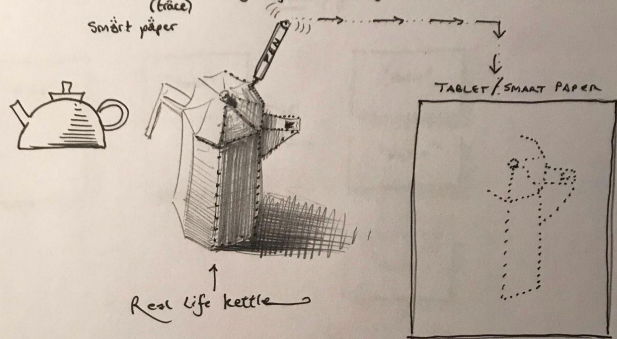 (trace)
Smärt päper
PEN
TABLET / SMART PAPER
Real life kettle